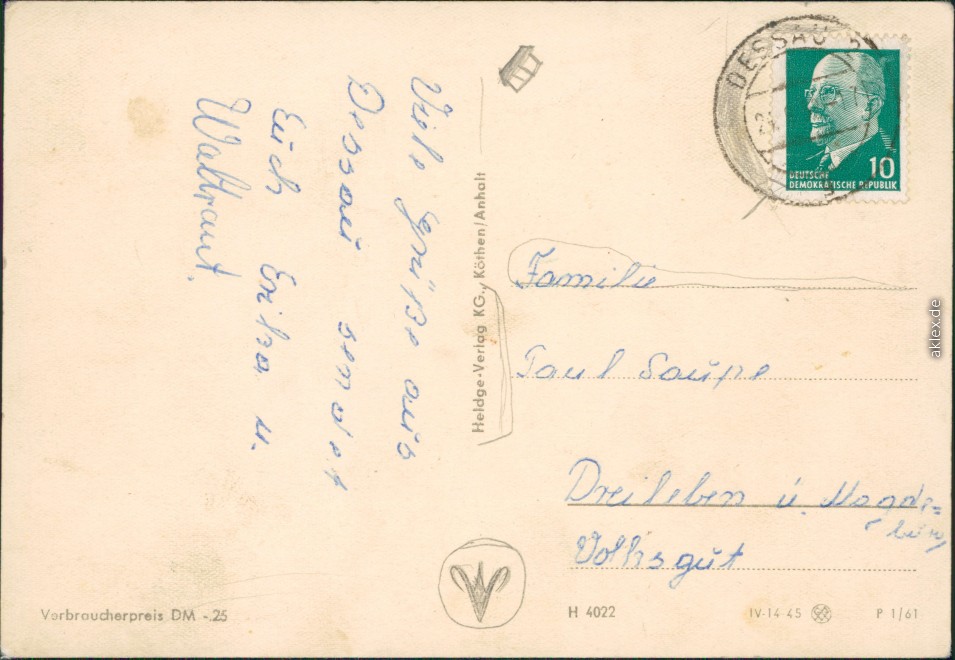 Viele Grüße aus
Dessau sendet
Euch Erika u.
Waltraut.
Heldge-Verlag KG., Köthen/Anhalt
DESSAU 2
10
DEUTSCHE
DEMOKRATISCHE REPUBLIK
Familie
Paul Saupe
Dreileben ü. Magde=
burg
Volksgut
Verbraucherpreis DM -.25
H 4022
IV-14-45
P 1/61
aklex.de